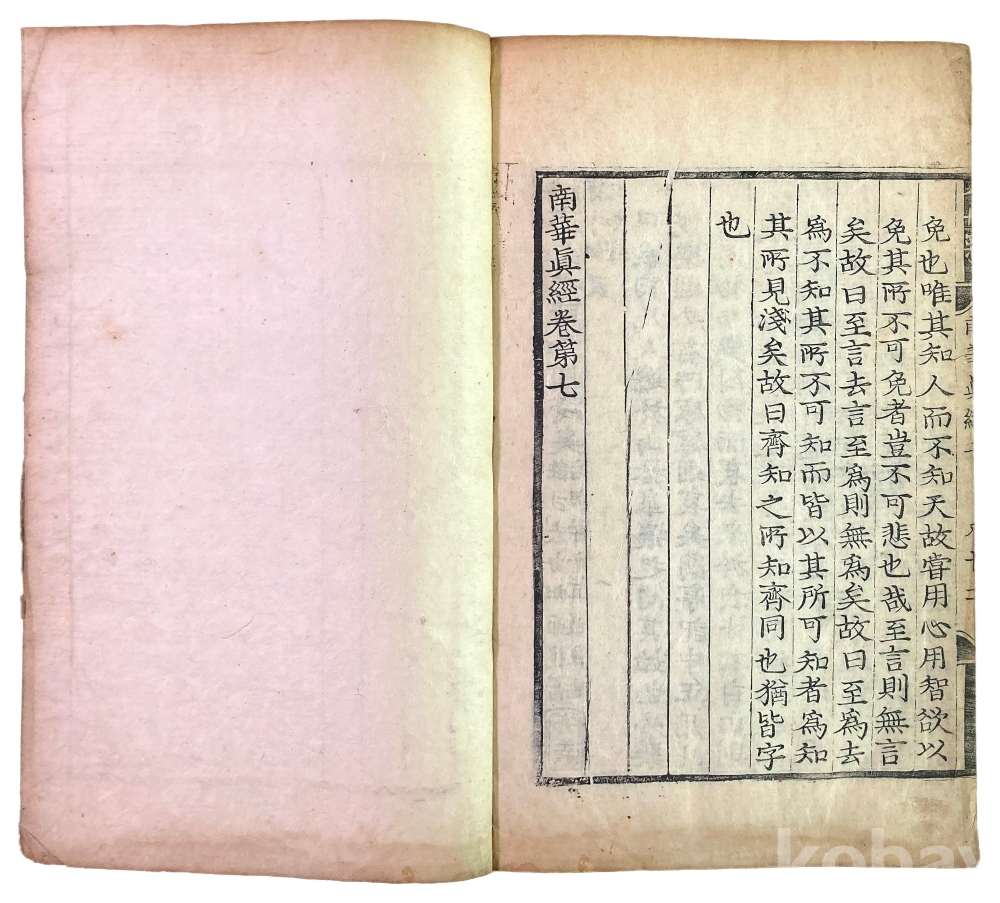 免也唯其知人而不知天故嘗用心用智欲以
免其所不可免者豈不可悲也哉至言則無言
矣故曰至言去言至爲則無爲矣故曰至爲去
爲不知其所不可知而皆以其所可知者爲知
其所見淺矣故曰齊知之所知齊同也猶皆字
也
南華眞經卷第七
kobay